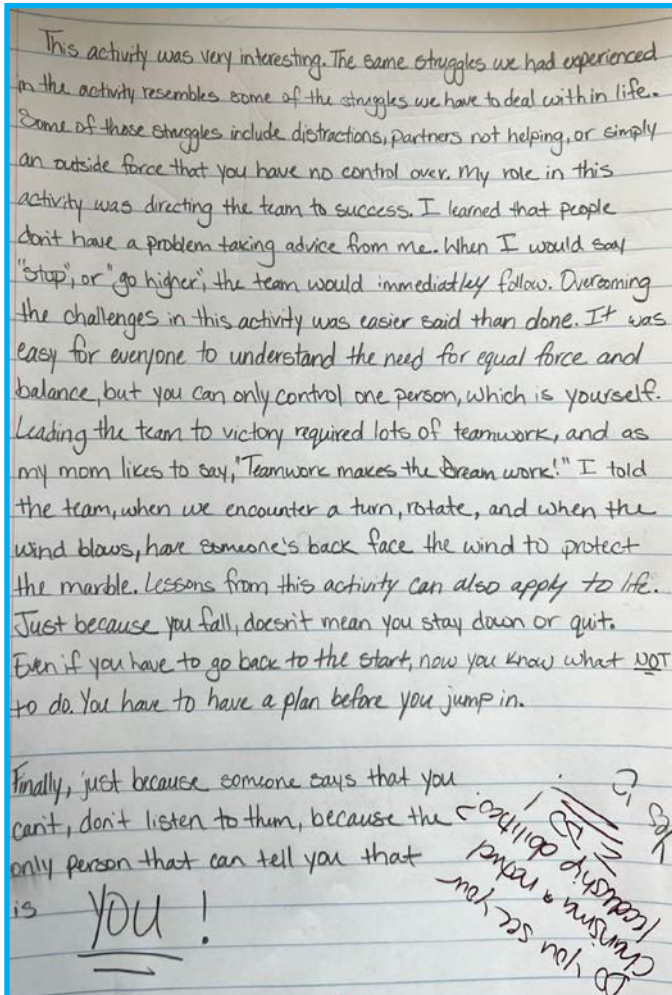 This activity was very interesting. The same struggles we had experienced
in the activity resembles some of the struggles we have to deal with in life.
Some of those struggles include distractions, partners not helping, or simply
an outside force that you have no control over. My role in this
activity was directing the team to success. I learned that people
don't have a problem taking advice from me. When I would say
"stop", or "go higher", the team would immediatley follow. Overcoming
the challenges in this activity was easier said than done. It was
easy for everyone to understand the need for equal force and
balance, but you can only control one person, which is yourself.
Leading the team to victory required lots of teamwork, and as
my mom likes to say, "Teamwork makes the dream work!" I told
the team, when we encounter a turn, rotate, and when the
wind blows, have someone's back face the wind to protect
the marble. Lessons from this activity can also apply to life.
Just because you fall, doesn't mean you stay down or quit.
Even if you have to go back to the start, now you know what NOT
to do. You have to have a plan before you jump in.
Finally, just because someone says that you
can't, don't listen to them, because the
only person that can tell you that
is YOU!
Do you see your
charisma & natural
leadership abilities?
I DO!
Yes